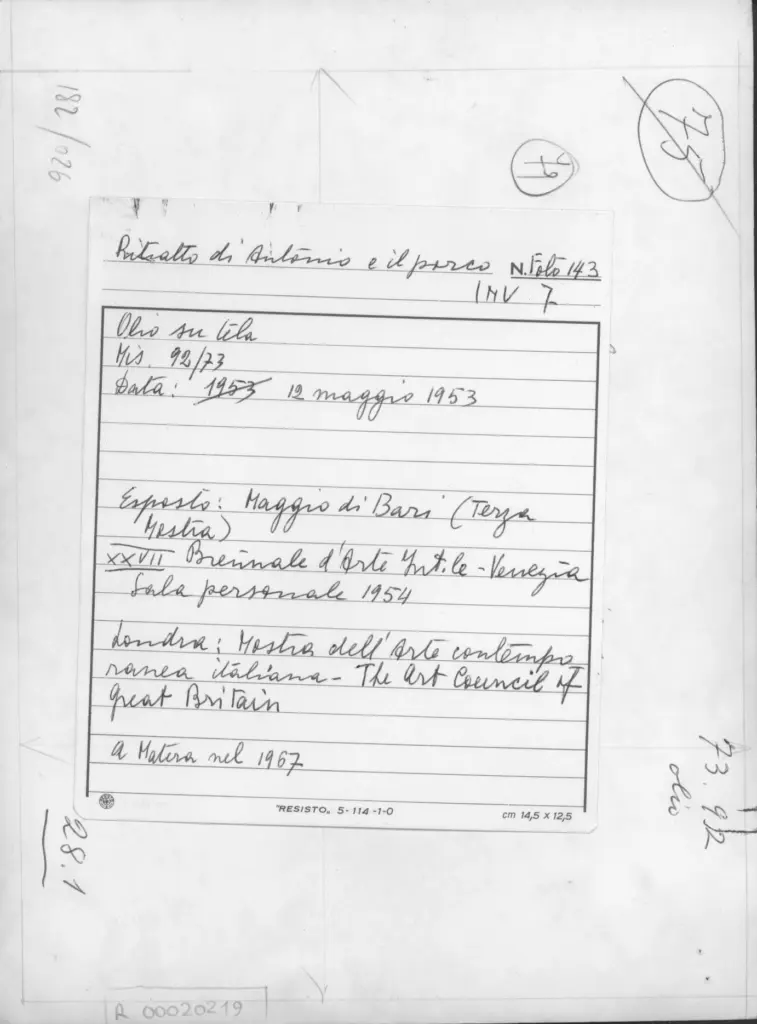 75
182/026
79
Ritratto di Antonio e il porco N. Foto 143
INV 7
Olio su tela
Mis. 92/73
Data: 1953 12 maggio 1953
Esposto: Maggio di Bari (Terza
Mostra)
XXVII Biennale d'Arte - Venezia
Sala personale 1954
Londra: Mostra dell'Arte contempo
ranea italiana - The Art Council of
great Britain
a Matera nel 1967
"RESISTO„ 5-114-1-0
cm 14,5 x 12,5
73.92
olio
28.1
R 00020219